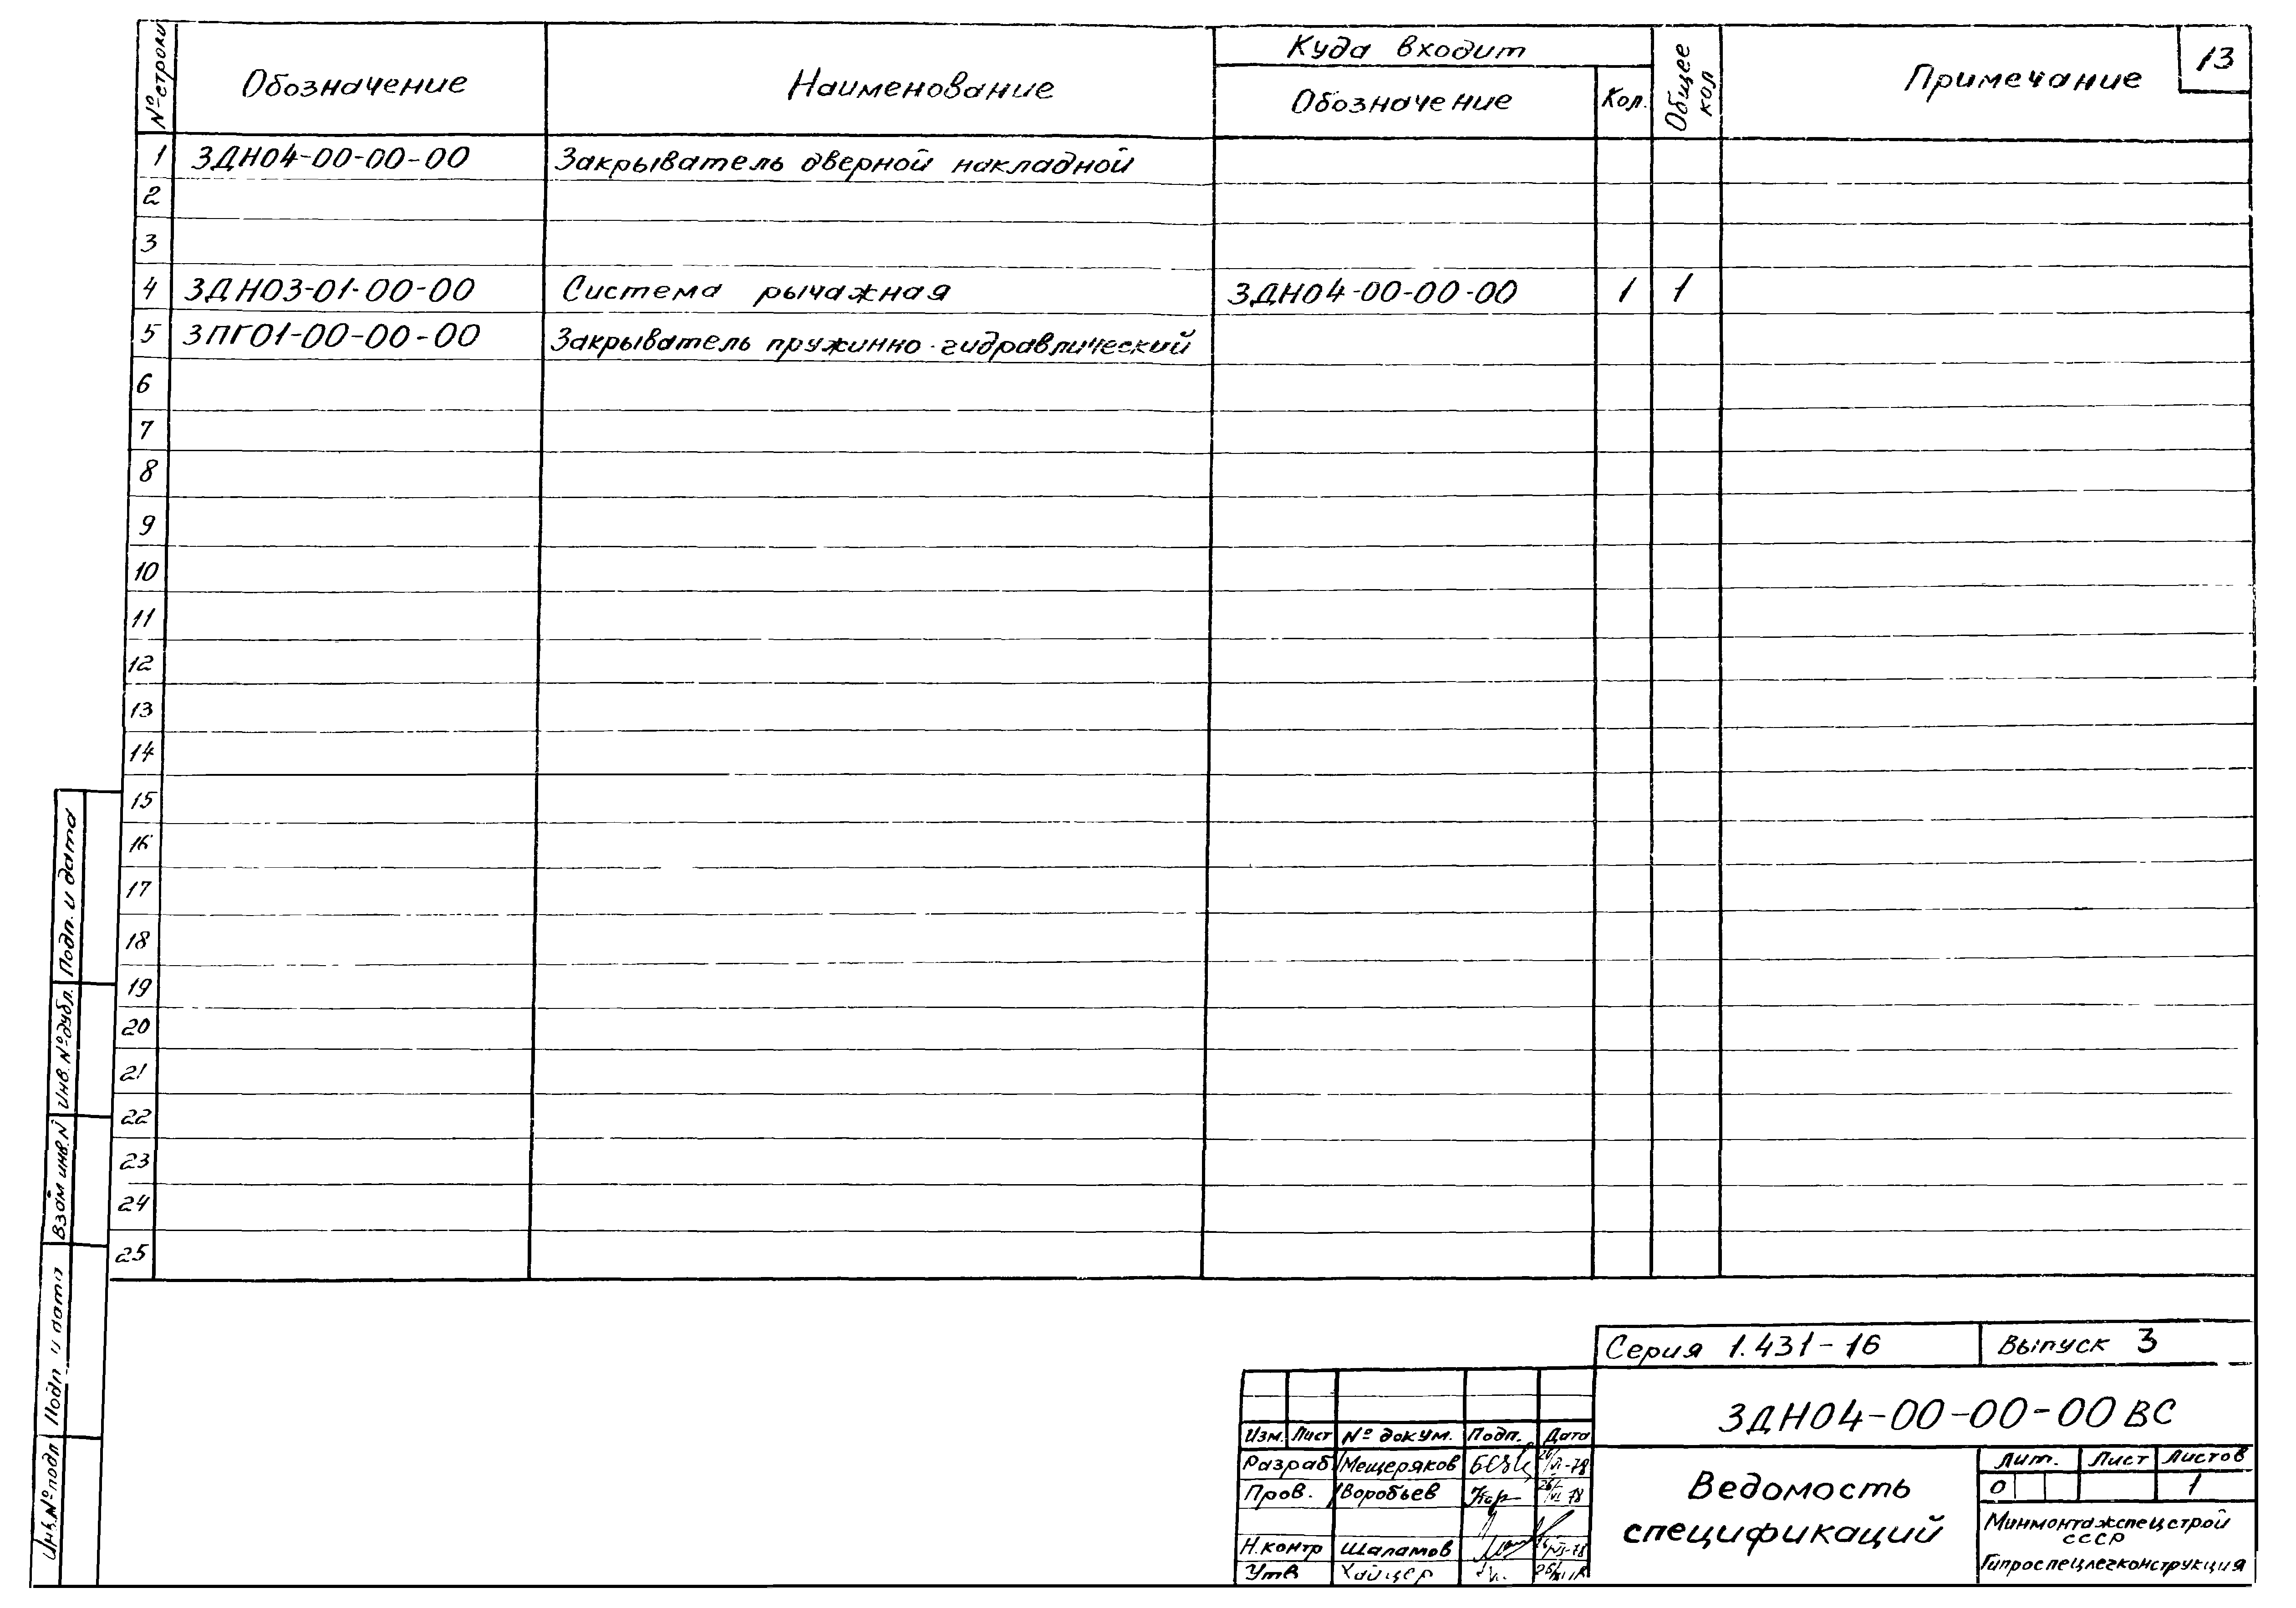 № строки
Обозначение
Наименование
Куда входит
Обозначение
Кол.
Общее кол
Примечание
13
1 ЗДН04-00-00-00 Закрыватель дверной накладной
2
3
4 ЗДН03-01-00-00 Система рычажная ЗДН04-00-00-00 1 1
5 ЗПГ01-00-00-00 Закрыватель пружинно-гидравлический
6
7
8
9
10
11
12
13
14
15
16
17
18
19
20
21
22
23
24
25
Подп. и дата
Инв. № дубл.
Взам инв. N
Подп и дата
Инв. № подл
Серия 1.431-16 Выпуск 3
ЗДН04-00-00-00 ВС
Изм. Лист № докум. Подп. Дата
Разраб. Мещеряков
Пров. Воробьев
Н.контр Шаламов
Утв
Ведомость
спецификаций
Лит. Лист Листов
О 1
Минмонтажспецстрой
СССР
Гипроспецлегконструкция